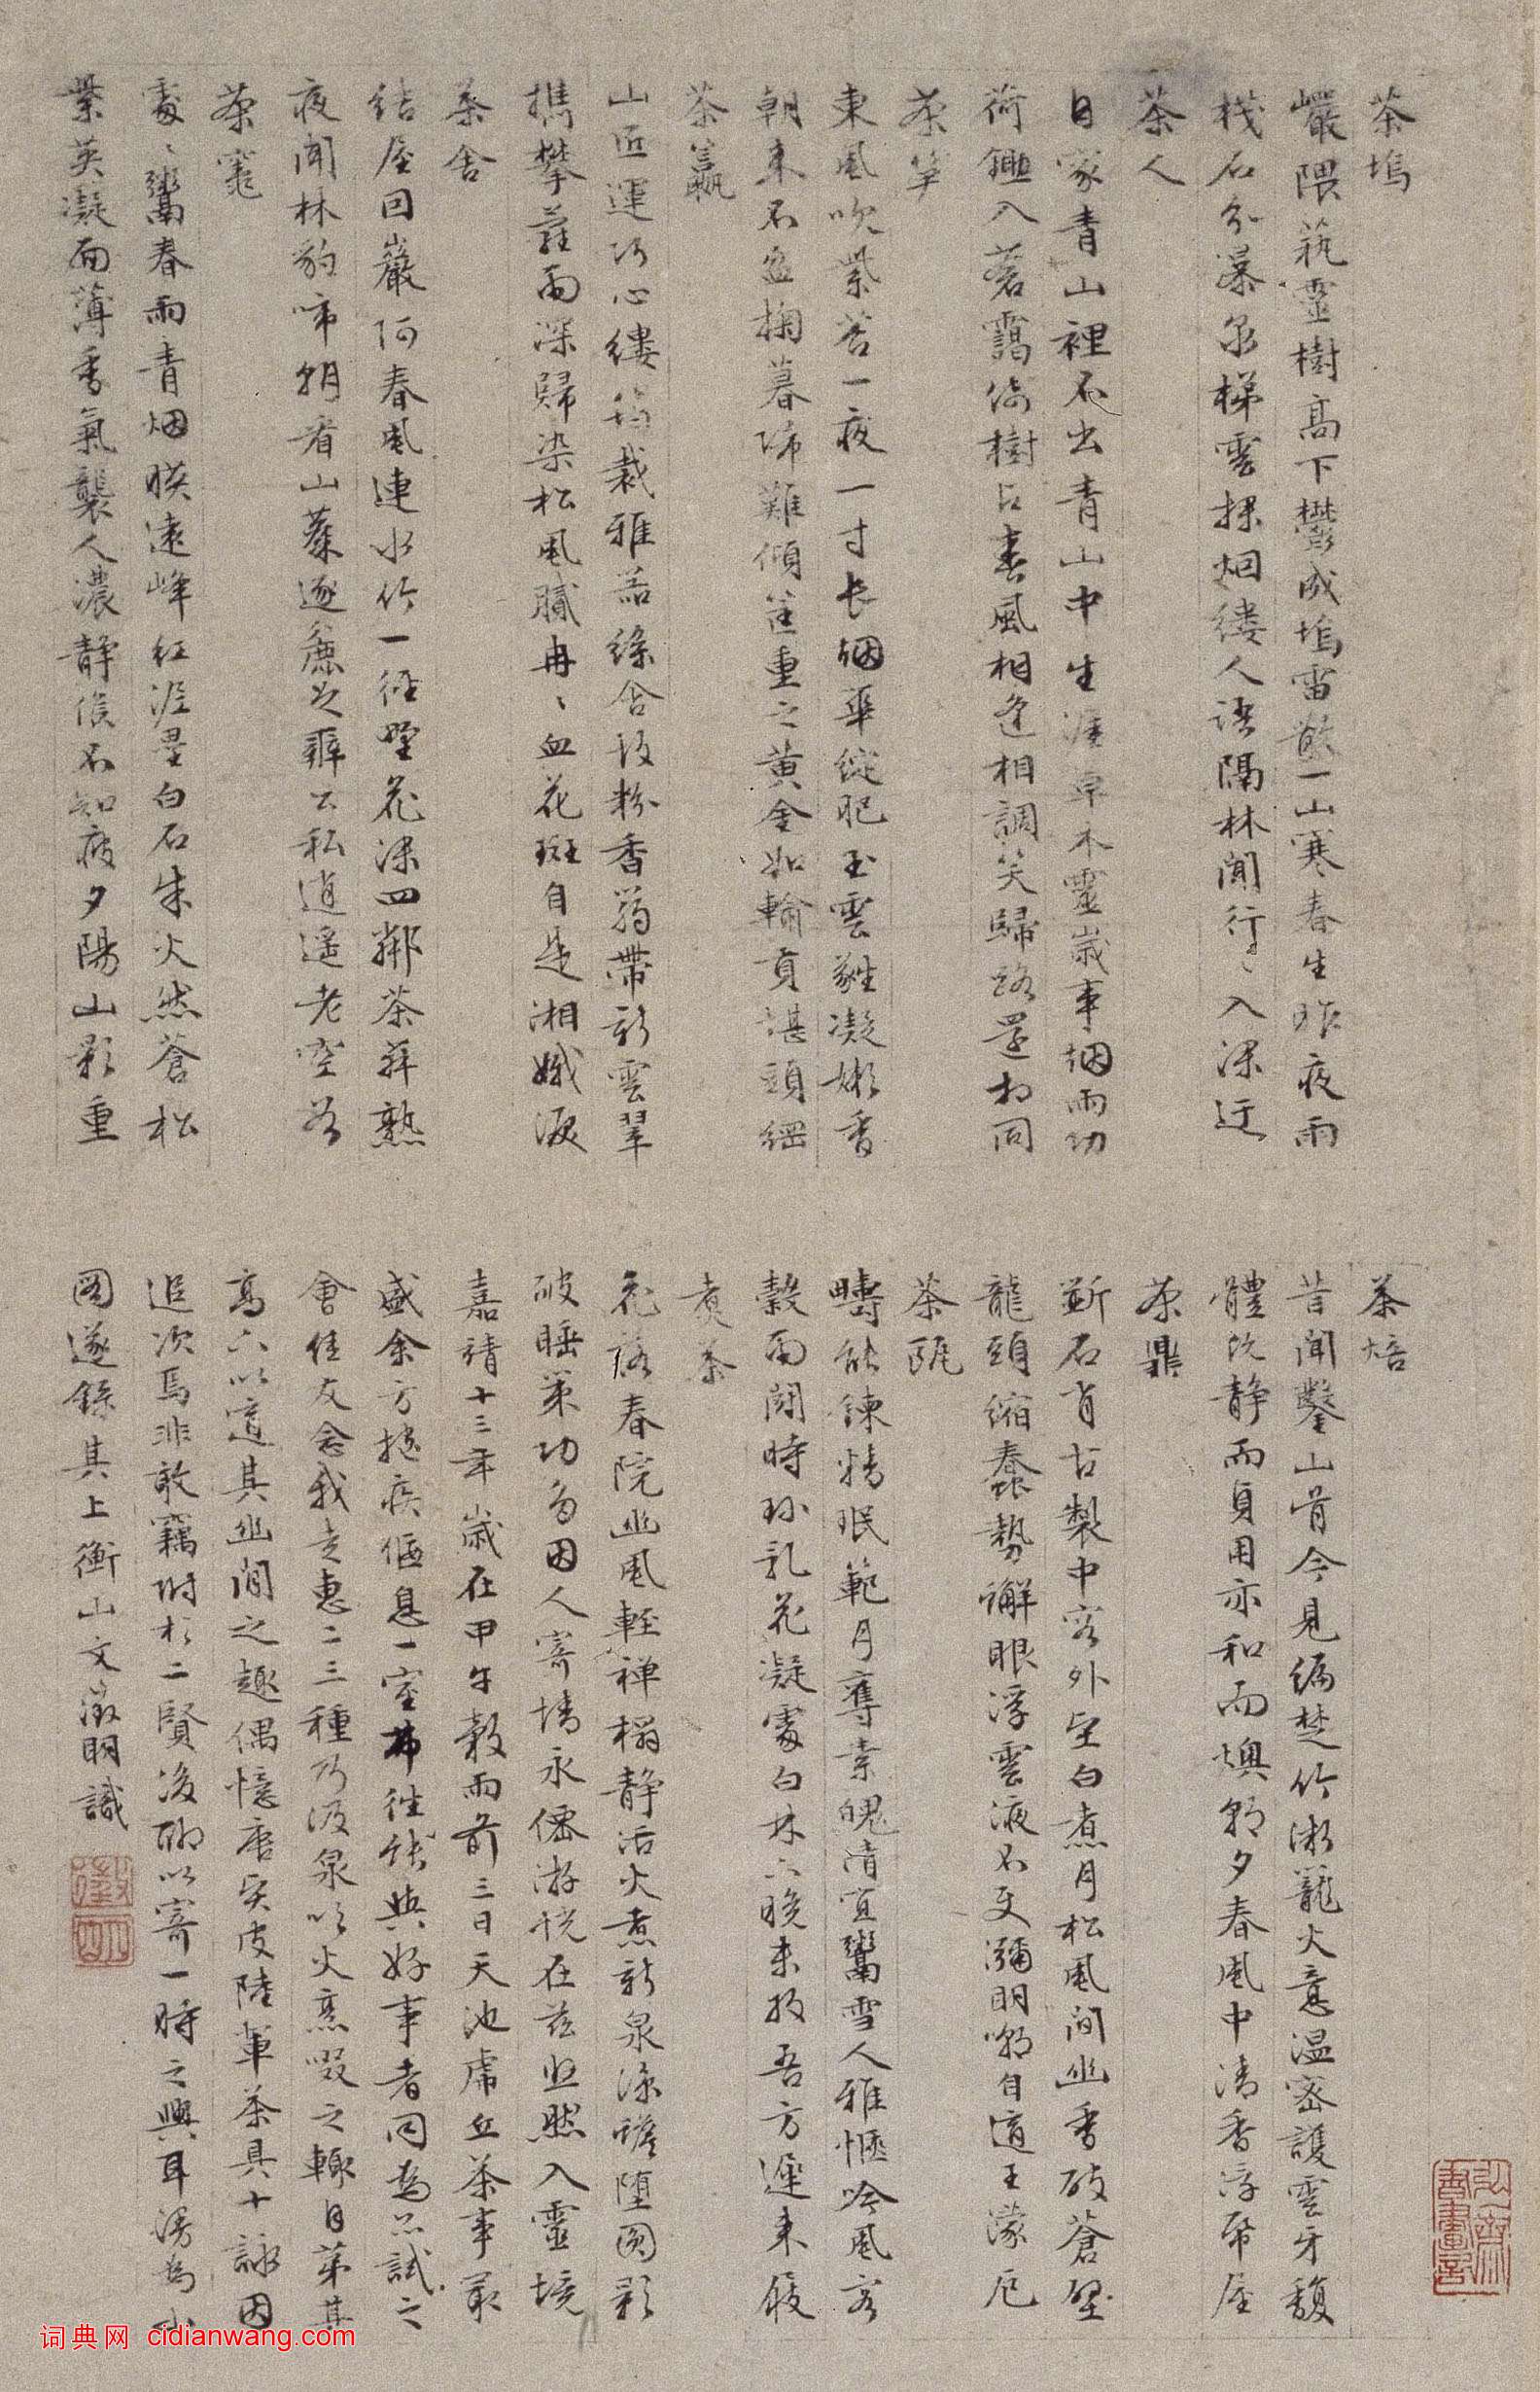 茶塢
巖隈蓺靈樹高下鬱成塢雷散一山寒春生昨夜雨
棧石分瀑泉梯雲探烟縷人語隔林聞行〻入深迂
茶人
自家青山裡不出青山中生涯草木靈歲事烟雨功
荷鋤入蒼靄倚樹占春風相逢相調笑歸路還相同
茶筍
東風吹紫苔一夜一寸長烟華綻肥玉雲蕤凝嫩香
朝來不盈掬暮歸難傾筐重之黃金如輸貢堪頭綱
茶籯
山匠運巧心縷筠裁雅器綠含故粉香篛帶新雲翠
攜攀蘿雨深歸染松風膩冉〻血花斑自是湘娥淚
茶舍
結屋因巖阿春風連水竹一徑野花深四鄰茶荈熟
夜聞林豹啼朝看山麋逐麤足辦公私逍遙老空谷
茶竈
處〻鬻春雨青烟映遠峰紅泥壘白石朱火然蒼松
紫英凝面薄香氣襲人濃靜候不知疲夕陽山影重
茶焙
昔聞鑿山骨今見編楚竹微籠火意溫密護雲牙馥
體既靜而貞用亦和而燠朝夕春風中清香浮帋屋
茶鼎
斲石肖古製中容外堅白煮月松風間幽香破蒼壁
龍頭縮蠢勢蟹眼浮雲液不使彌明嘲自適王濛厄
茶甌
疇能鍊精珉範月奪素魄清宜鬻雪人雅愜吟風客
穀雨鬭時珍乳花凝處白林下晚未收吾方遲來屐
煮茶
花落春院幽風輕禅榻靜活火煮新泉涼蟾墮圓影
破睡策功多因人寄情永僊遊恍在茲悠然入靈境
嘉靖十三年歲在甲午穀雨前三日天池虎丘茶事最
盛余方抱疾偃息一室弗往能與好事者同為品試之
會佳友念我走惠二三種乃汲泉以火烹啜之輒自第其
高下以適其幽閒之趣偶憶唐賢皮陸輩茶具十詠因
追次焉非敢竊附於二賢後聊以寄一時之興耳漫為小
圖遂錄其上衡山文徵明識
徵明
書畫記
词典网 cidianwang.com